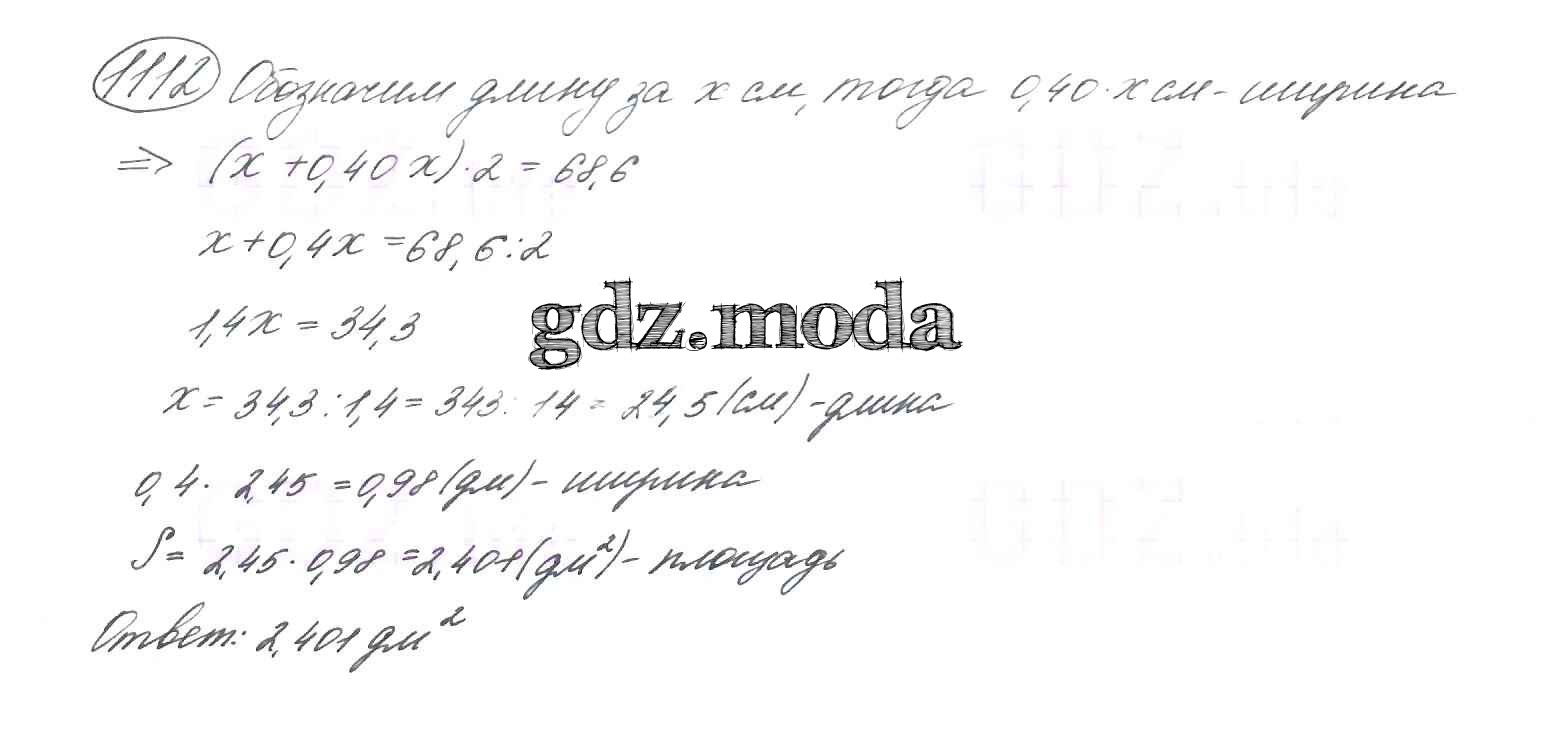 1112 Обозначим длину за x см, тогда 0,40·x см - ширина
=> (x + 0,40 x)·2 = 68,6
x + 0,4x = 68,6:2
1,4x = 34,3
gdz.moda
x = 34,3:1,4 = 343:14 = 24,5 (см) - длина
0,4· 2,45 = 0,98 (дм) - ширина
S = 2,45·0,98 = 2,401 (дм²) - площадь
Ответ: 2,401 дм²